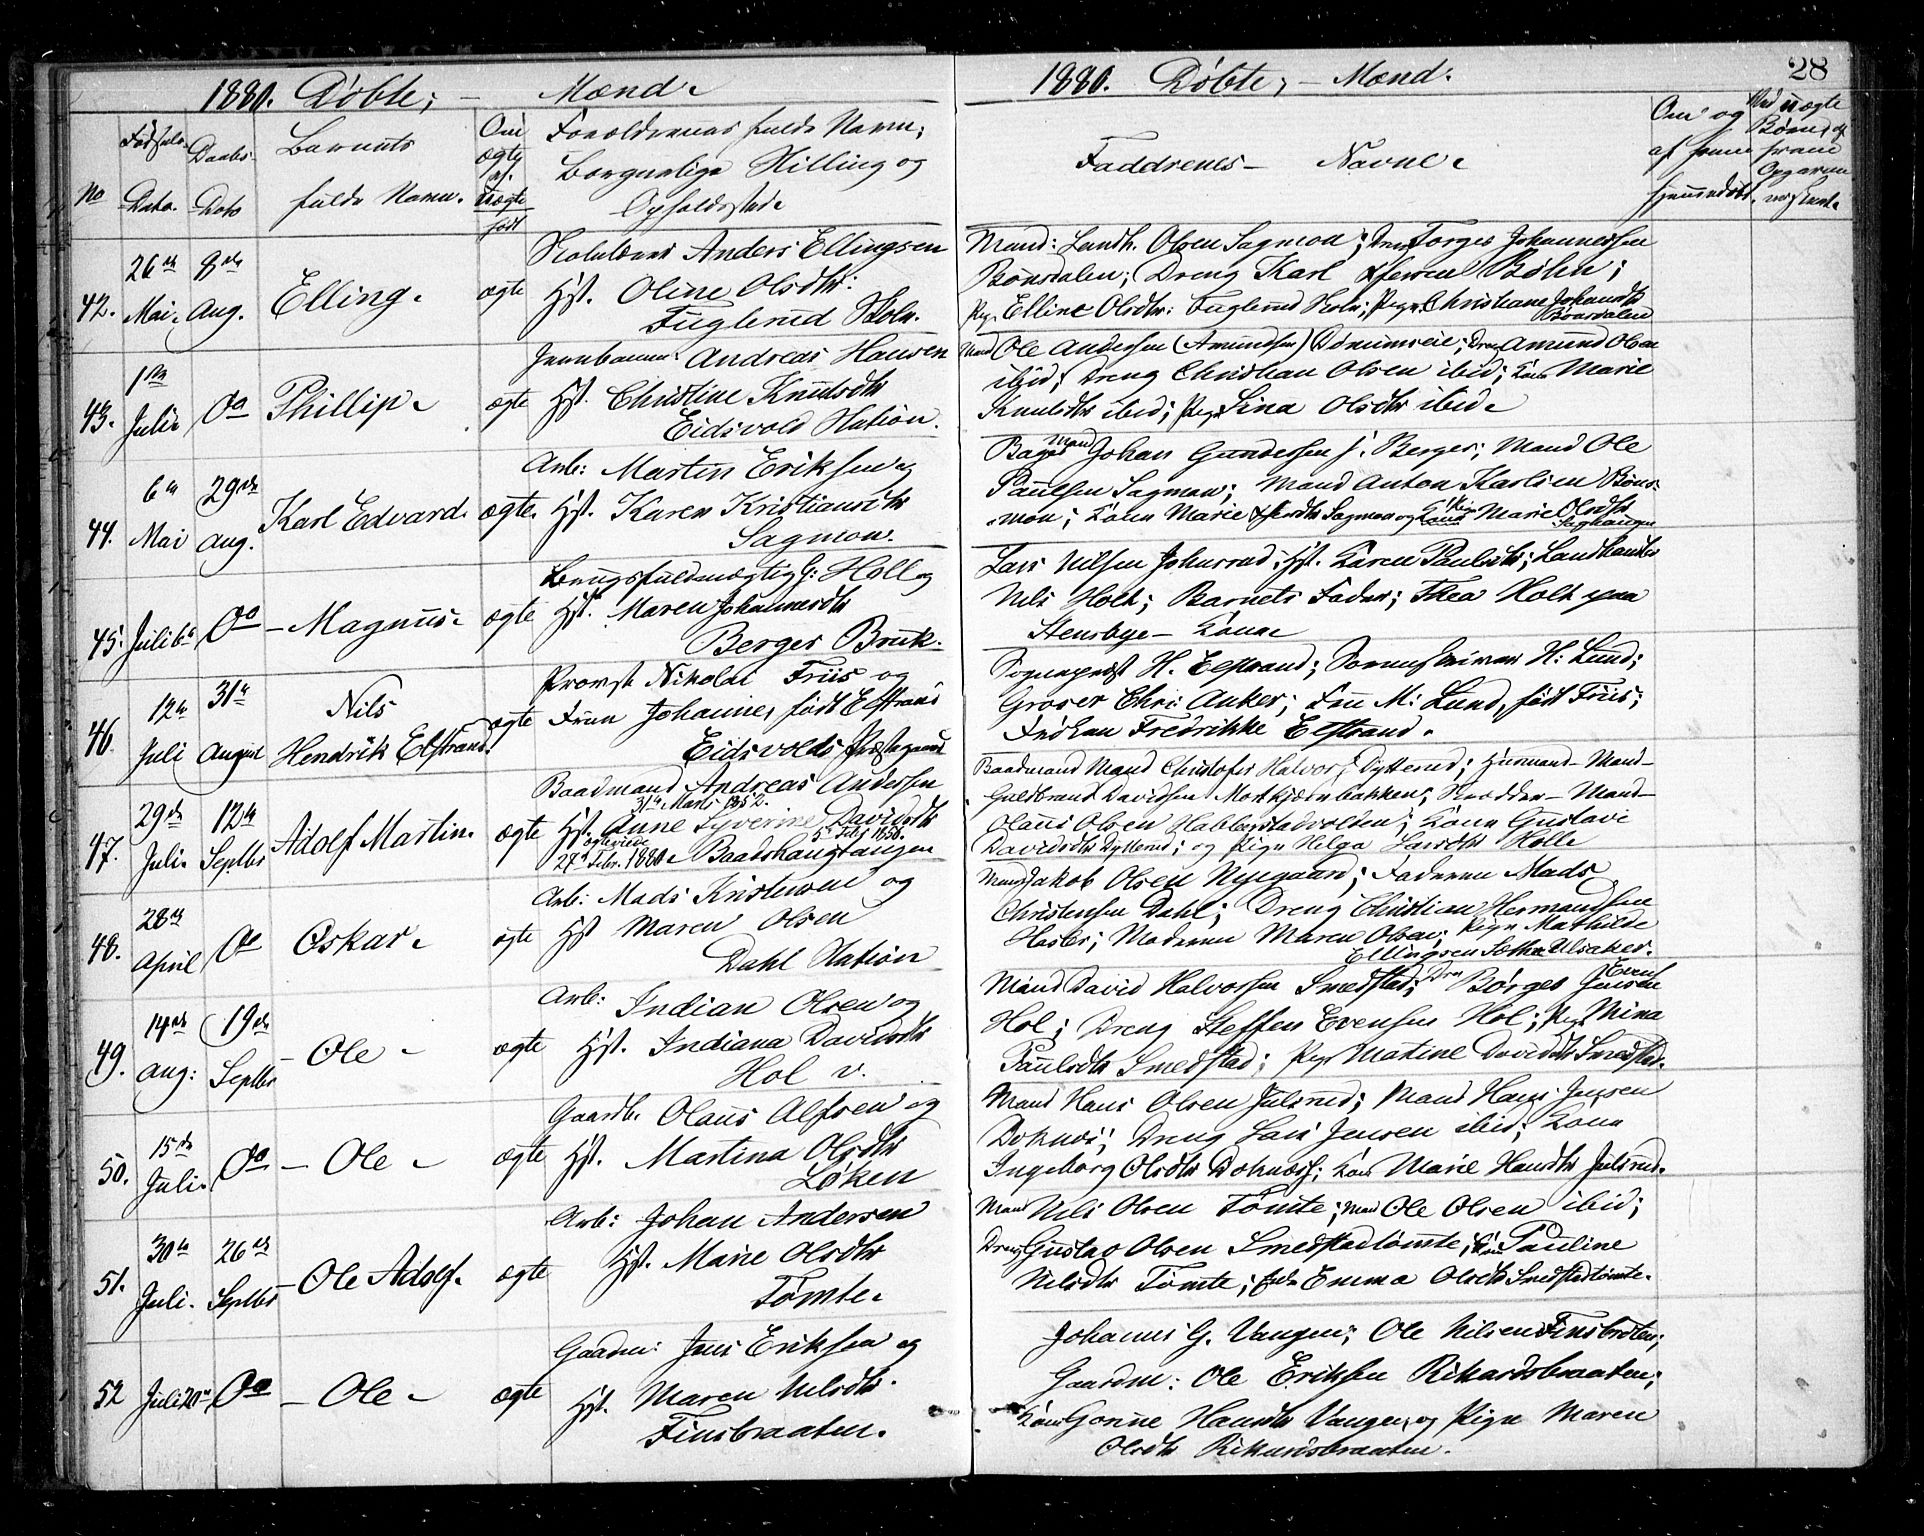 1880. Døbte, – Mænd.
No
Fødsels-
Dato.
Daabs-
Dato
Barnets
fulde Navn.
Om
ægte
el.
uægte
født
Forældrenes fulde Navn,
Borgerlige Stilling og
Opholdssted.
42.
26de
Mai.
8de
Aug.
Elling.
ægte
Anders Ellingsen
Hst. Oline Olsdtr:
Fuglerud Skole.
43.
1ste
Juli
Do
Phillip.
ægte
Andreas Hansen
Hst. Christine Knudsdtr
Eidsvold Station.
44.
6te
Mai
29de
Aug.
Karl Edvard.
ægte.
Arb: Martin Eriksen og
Hst. Karen Kristiansdtr
Sagmoen.
45.
Juli 6te
Do
– Magnus.
ægte
Brugsfuldmægtig G: Holl og
Hst. Maren Johannesdtr
Berger Bruk.
46.
12te
Juli
31te
August
Nils
Hendrik Elstrand.
ægte
Provst Nikolai Friis og
Frue Johanne, født Elstrand
Eidsvolds Præstegaard
47.
29de
Juli.
12te
Septbr
Adolf Martin.
ægte
Baadmand Andreas Andersen
31te Marts 1852.
Hst. Anne Syverine Davidsdtr
5te Febr 1856.
27de Febr. 1880. Baadshaugtangen
48.
28de
April
Do
Oskar.
ægte
Arb: Mads Kristensen og
Hst Maren Olsen
Dahl Station
49.
14de
Aug:
19de
Septbr
– Ole –
ægte
Arb: Indian Olsen og
Hst. Indiana Davidsdtr
Hol v.
50.
15de
Juli.
Do
– Ole –
ægte
Gaardb. Olaus Alfsen og
Hst. Martina Olsdtr
Løken
51.
30te
Juli.
26de
Septbr
– Ole Adolf.
ægte
Arb: Johan Andersen
Hst. Marie Olsdtr
Tømte.
52
Juli 20de
Do
– Ole –
ægte
Gaardm: Jens Eriksen og
Hst. Maren Nilsdtr.
Finsbraaten.
1880. Døbte, – Mænd.
28
Faddrenes – Navne.
Om og
af hvem
hjemmedøbt.
Ved uægte
Børn
Mand: Landh. Olsen Sagmoen; Dreng Torger Johannessen
Bønsdalen; Dreng Karl Bøhn;
Pige Elline Olsdtr: Fuglerud Skole; Pige Christiane Johansdtr
Bønsdalen
Mand Ole Andersen (Amundsen) Dønnumseie; Dreng Amund Olsen
ibid; Dreng Christian Olsen ibid; Kone Marie
Knudsdtr ibid; Pige Sina Olsdtr ibid.
Mand Johan Gundersen f. Berger; Mand Ole
Paulsen Sagmoen; Mand Anton Karlsen Bøns-
moen; Konen Marie Sagmoen og Marie Olsdtr
Saghaugen
Lars Nilsen Johnsrud; Hst. Karen Paulsdtr; Landhandler
Nils Holt; Barnets Fader; Thea Holt paa
Stensbye – Kone
Sogneprest H. Elstrand; H: Lund;
Groser Chr: Anker; Fru M: Lund, født Friis;
Frøken Fredrikke Elstrand.
Baadmand Mand Christofer Halvors. Dytterud; Huusmand – Mand –
Guldbrand Davidsen Morkjærnbakken; Skrædder – Mand –
Olaus Olsen Habberstadvolden; Kone Gustave
Davidsdtr Dytterud; og Pige Helga Larsdtr Holle
Mand Jakob Olsen Nyegaard; Faderen Mads
Christensen Dahl; Dreng Christian Hermandsen
Hasler; Moderen Maren Olsen; Pige Mathilde
Ellingsen Sethre Ulsaker.
Mand David Halvorsen Smedstad; Dreng Børger Jensen
Hol; Dreng Steffen Evensen Hol; Pige Mina
Paulsdtr Smedstad; Pige Matine Davidsdtr Smedstad.
Mand Hans Olsen Julsrud; Mand Hans Jensen
Doknæs; Dreng Lars Jensen ibid; Kone
Ingeborg Olsdtr Doknæs; Kone Marie Hansdtr Julsrud.
Mand Nils Olsen Tømte; Mand Ole Olsen ibid;
Dreng Gustav Olsen Smedstadtømte; Kone Pauline
Nilsdtr Tømte; Emma Olsdtr Smedstadtømte.
Johannes G. Vangen; Ole Nilsen Finsbroten;
Gaardm: Ole Eriksen Rikardsbraaten;
Kone Gonne Hansdtr Vangen, og Pige Maren
Olsdtr Rikardsbraaten.